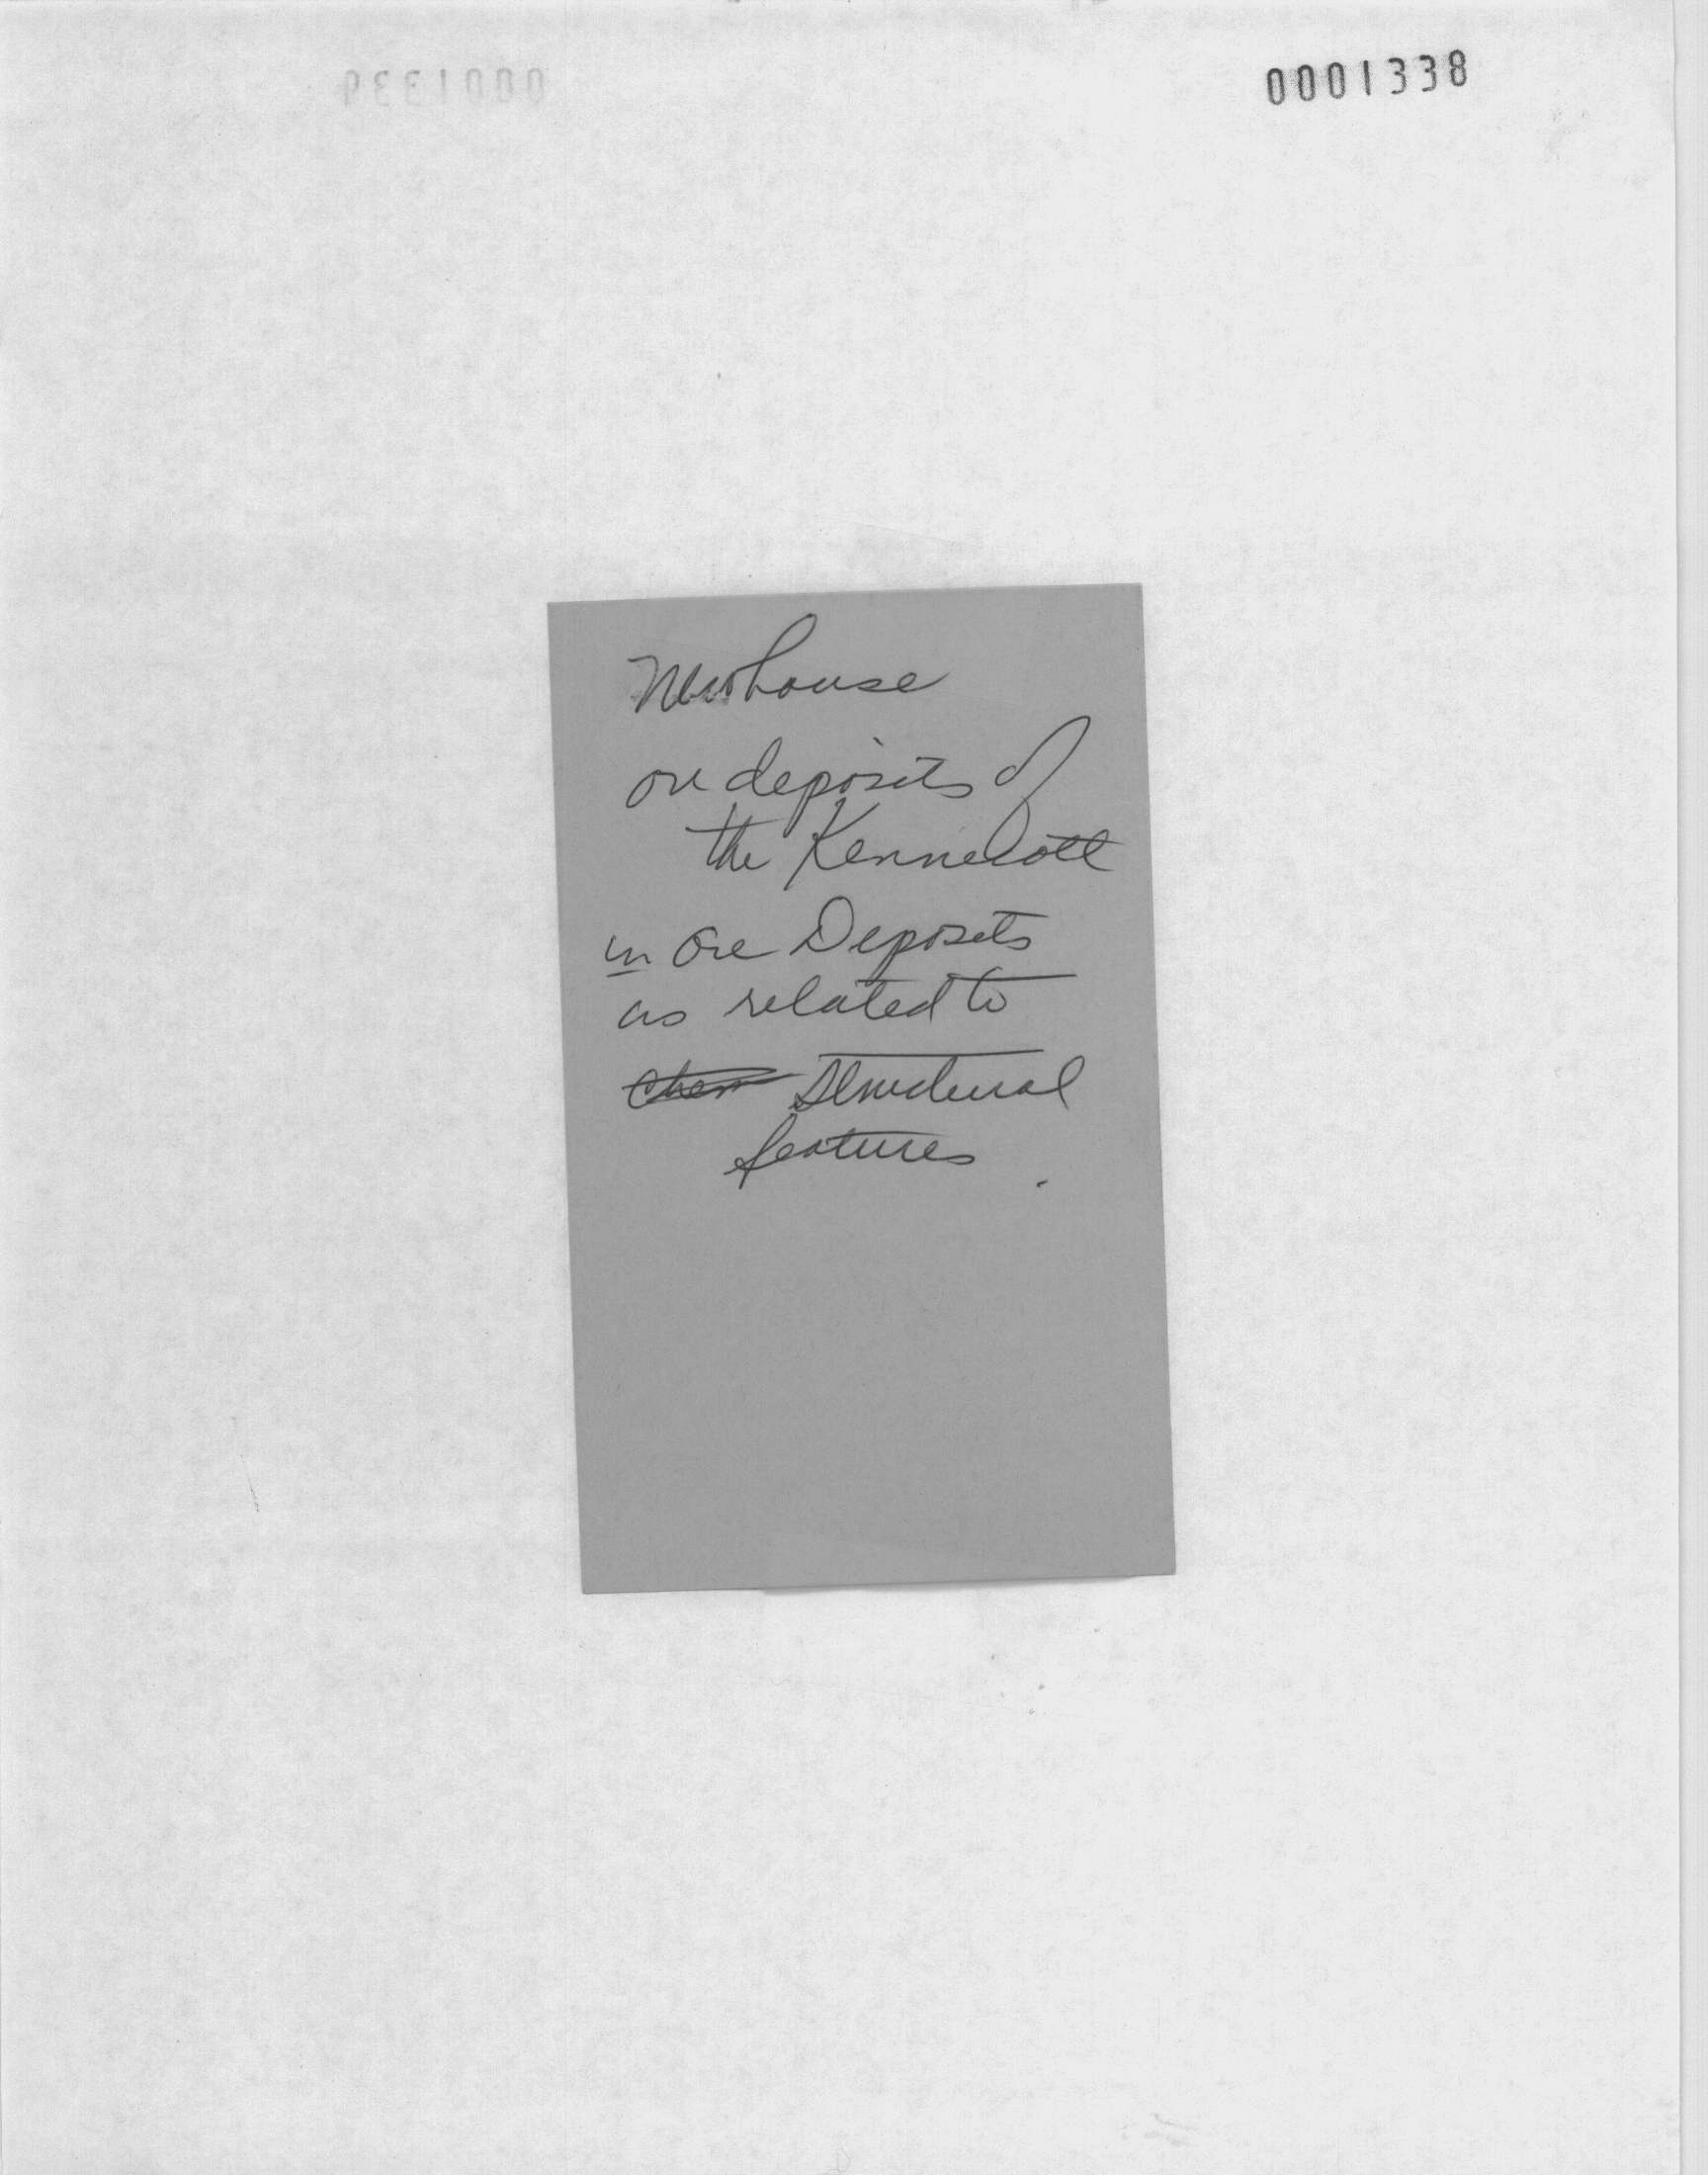 0001338
Newhouse
ore deposits of
the Kennecott
in Ore Deposits
as related to
Chem Structural
features.